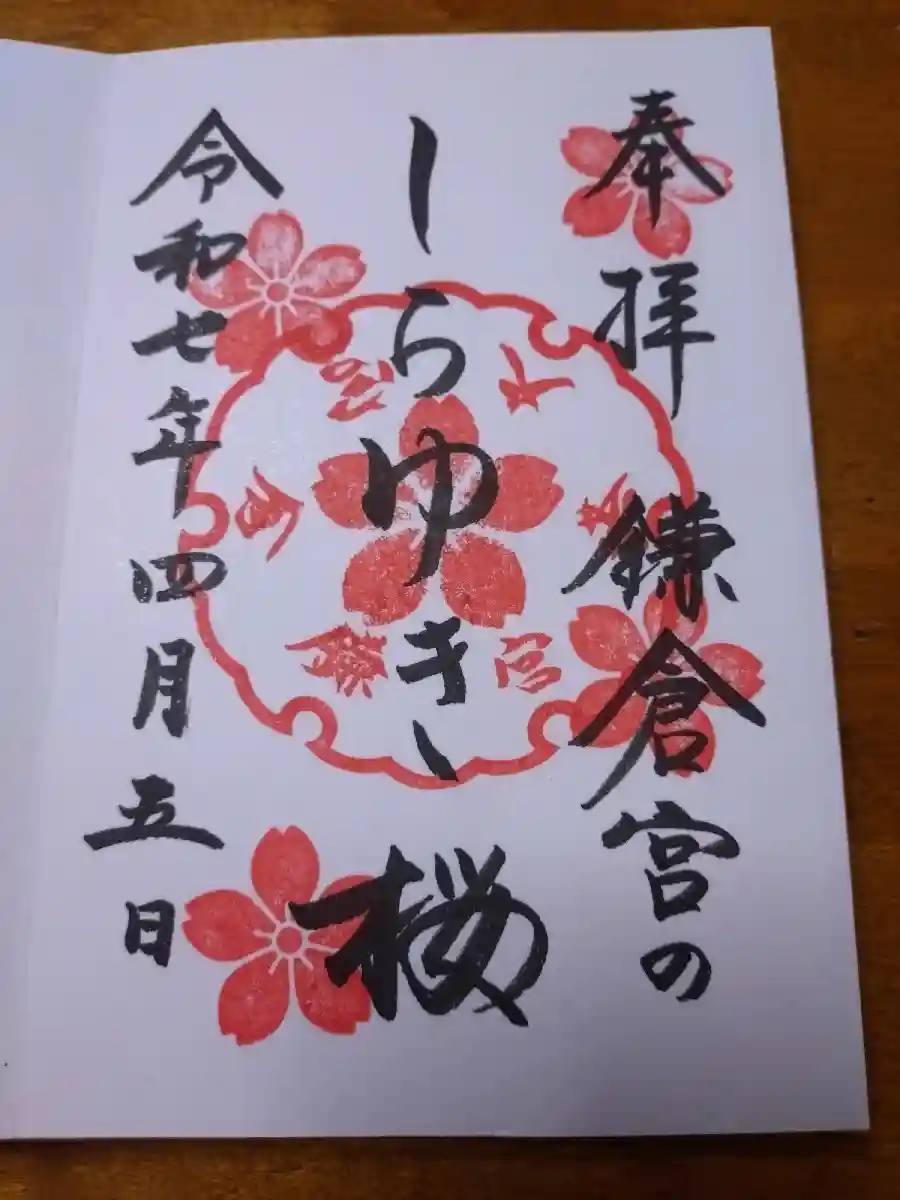 奉拝 鎌倉宮の
しらゆき桜
令和七年四月五日